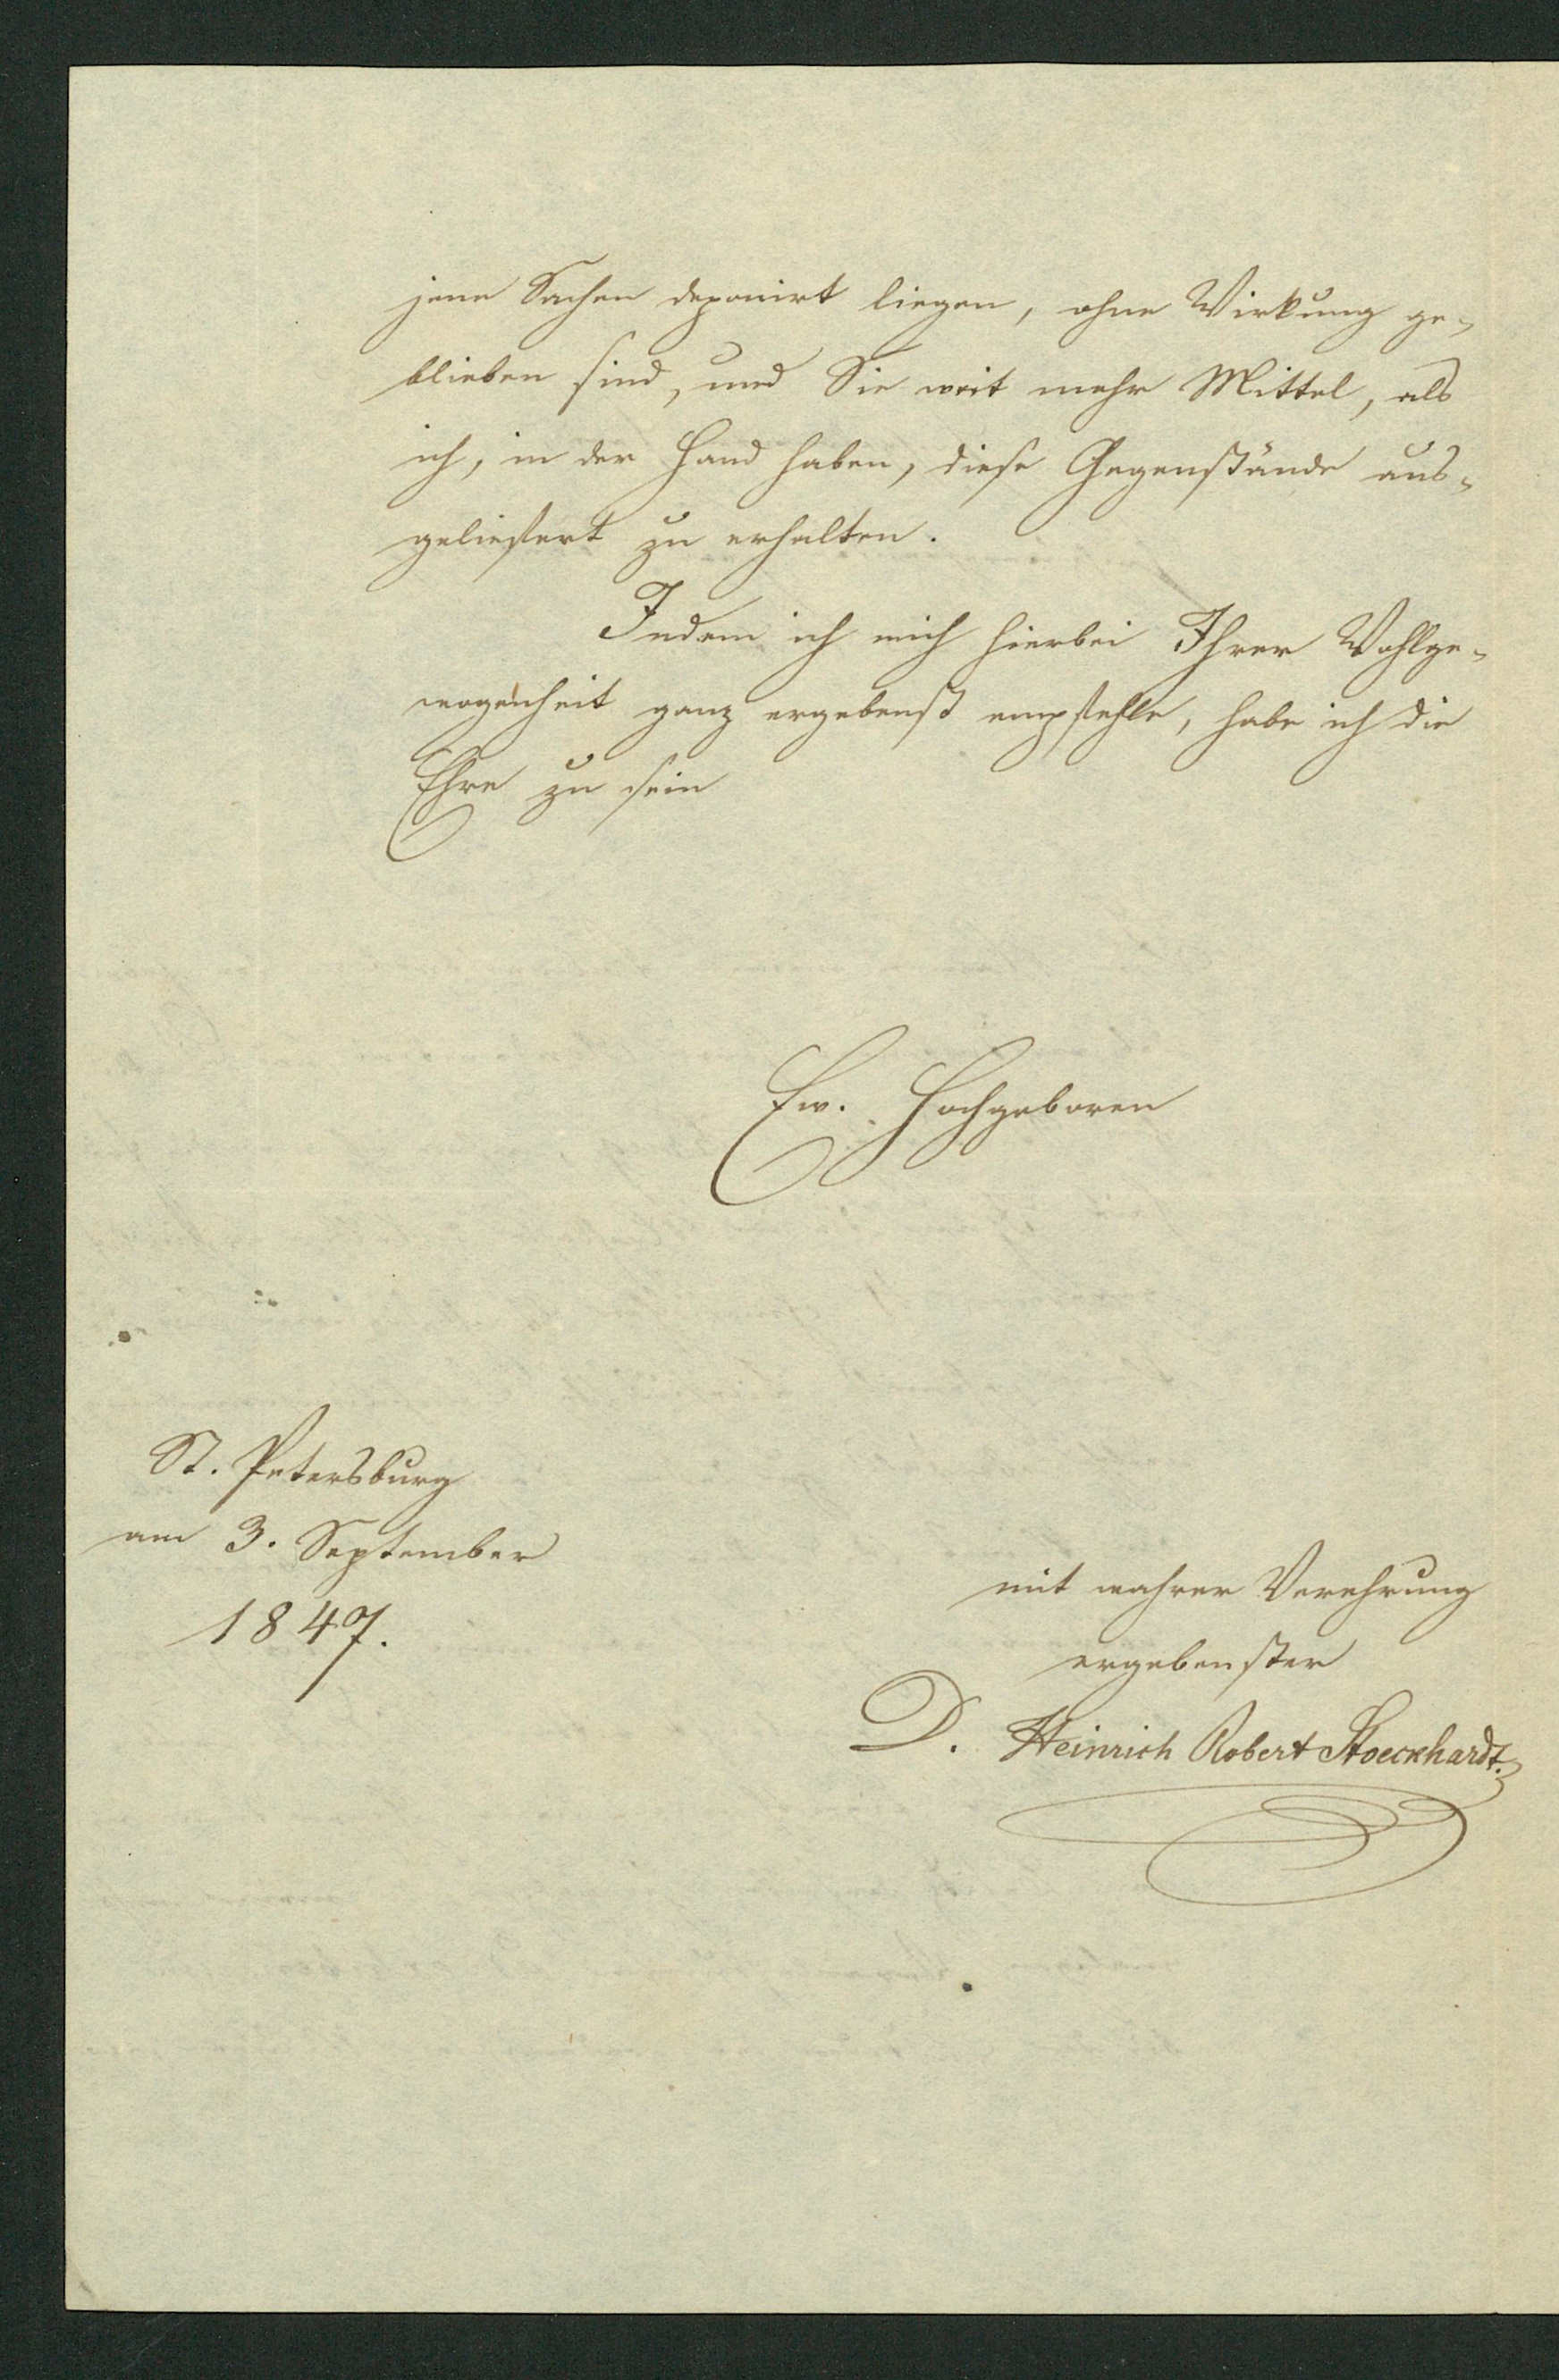 jene Sachen deponirt liegen, ohne Wirkung ge-
blieben sind, und Sie weit mehr Mittel, als
ich, in der Hand haben, diese Gegenstände aus-
geliefert zu erhalten.
Indem ich mich hierbei Ihrer Wohlge-
wogenheit ganz ergebenst empfehle, habe ich die
Ehre zu sein
Ew. Hochgeboren
St. Petersburg
am 3. September
1847.
mit wahrer Verehrung
ergebenster
D. Heinrich Robert Stoeckhardt.